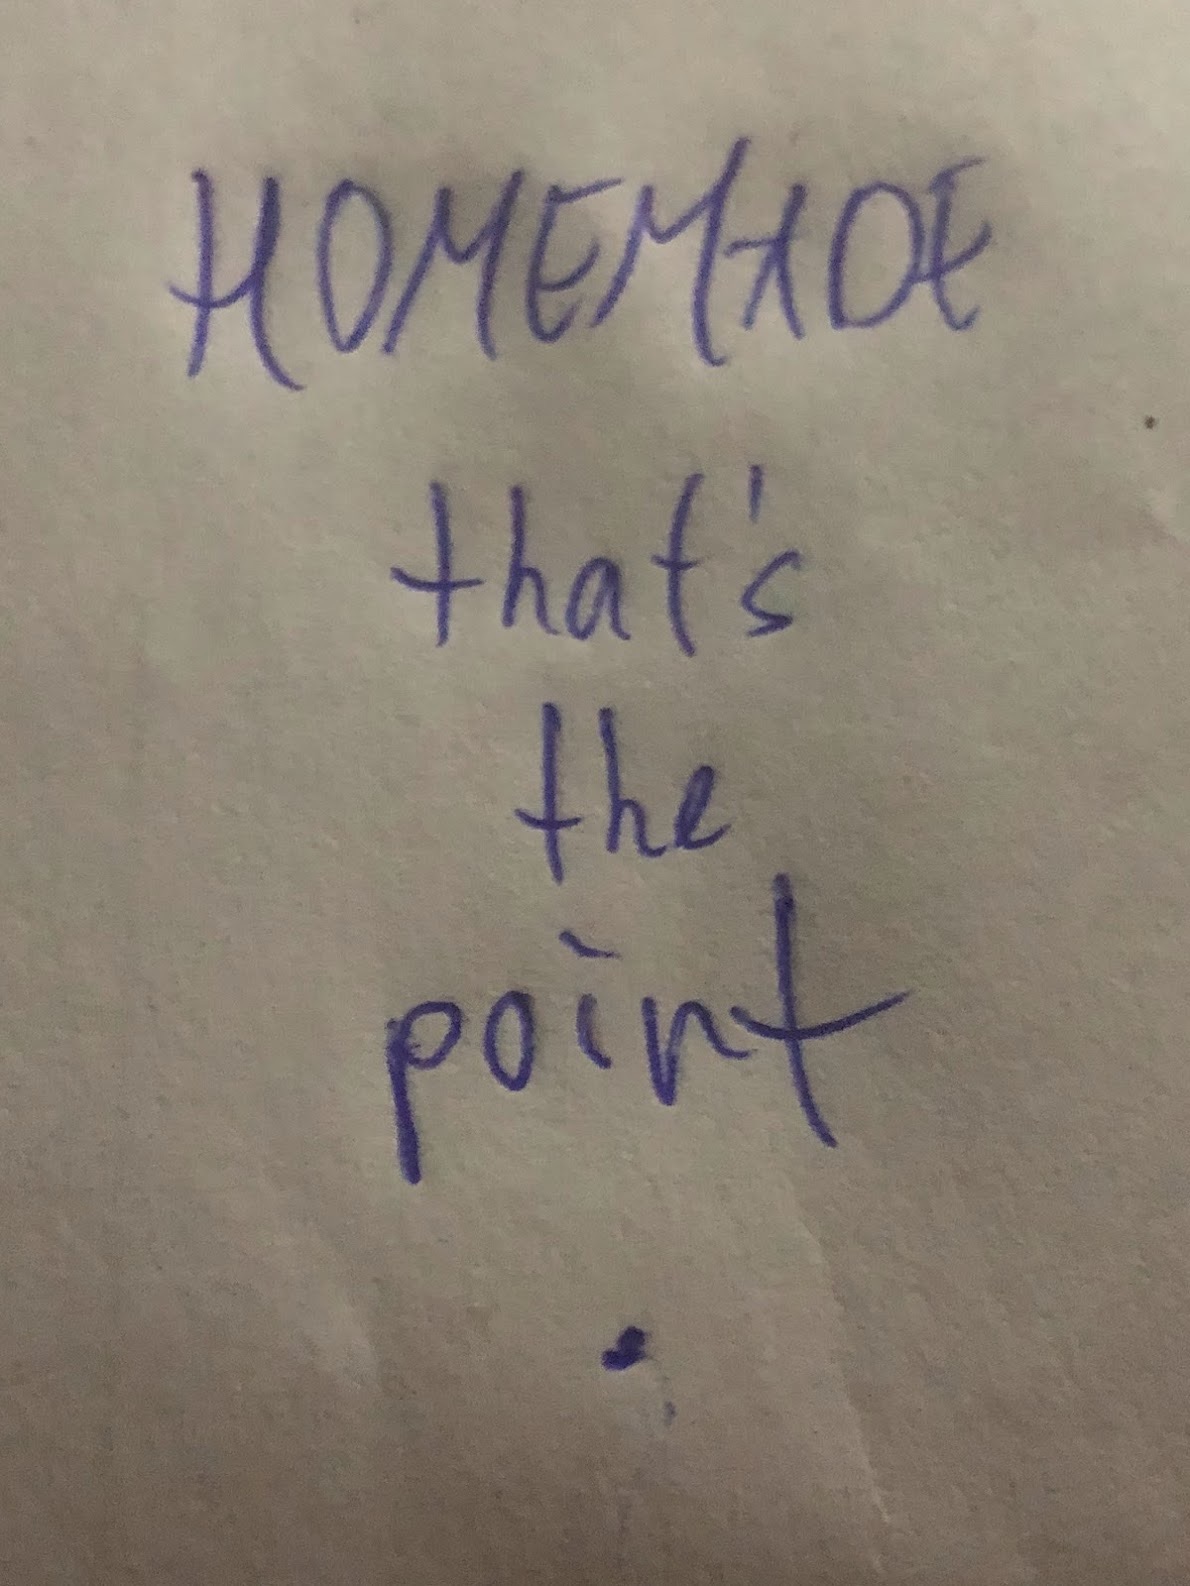 HOMEMADE
that's
the
point
.